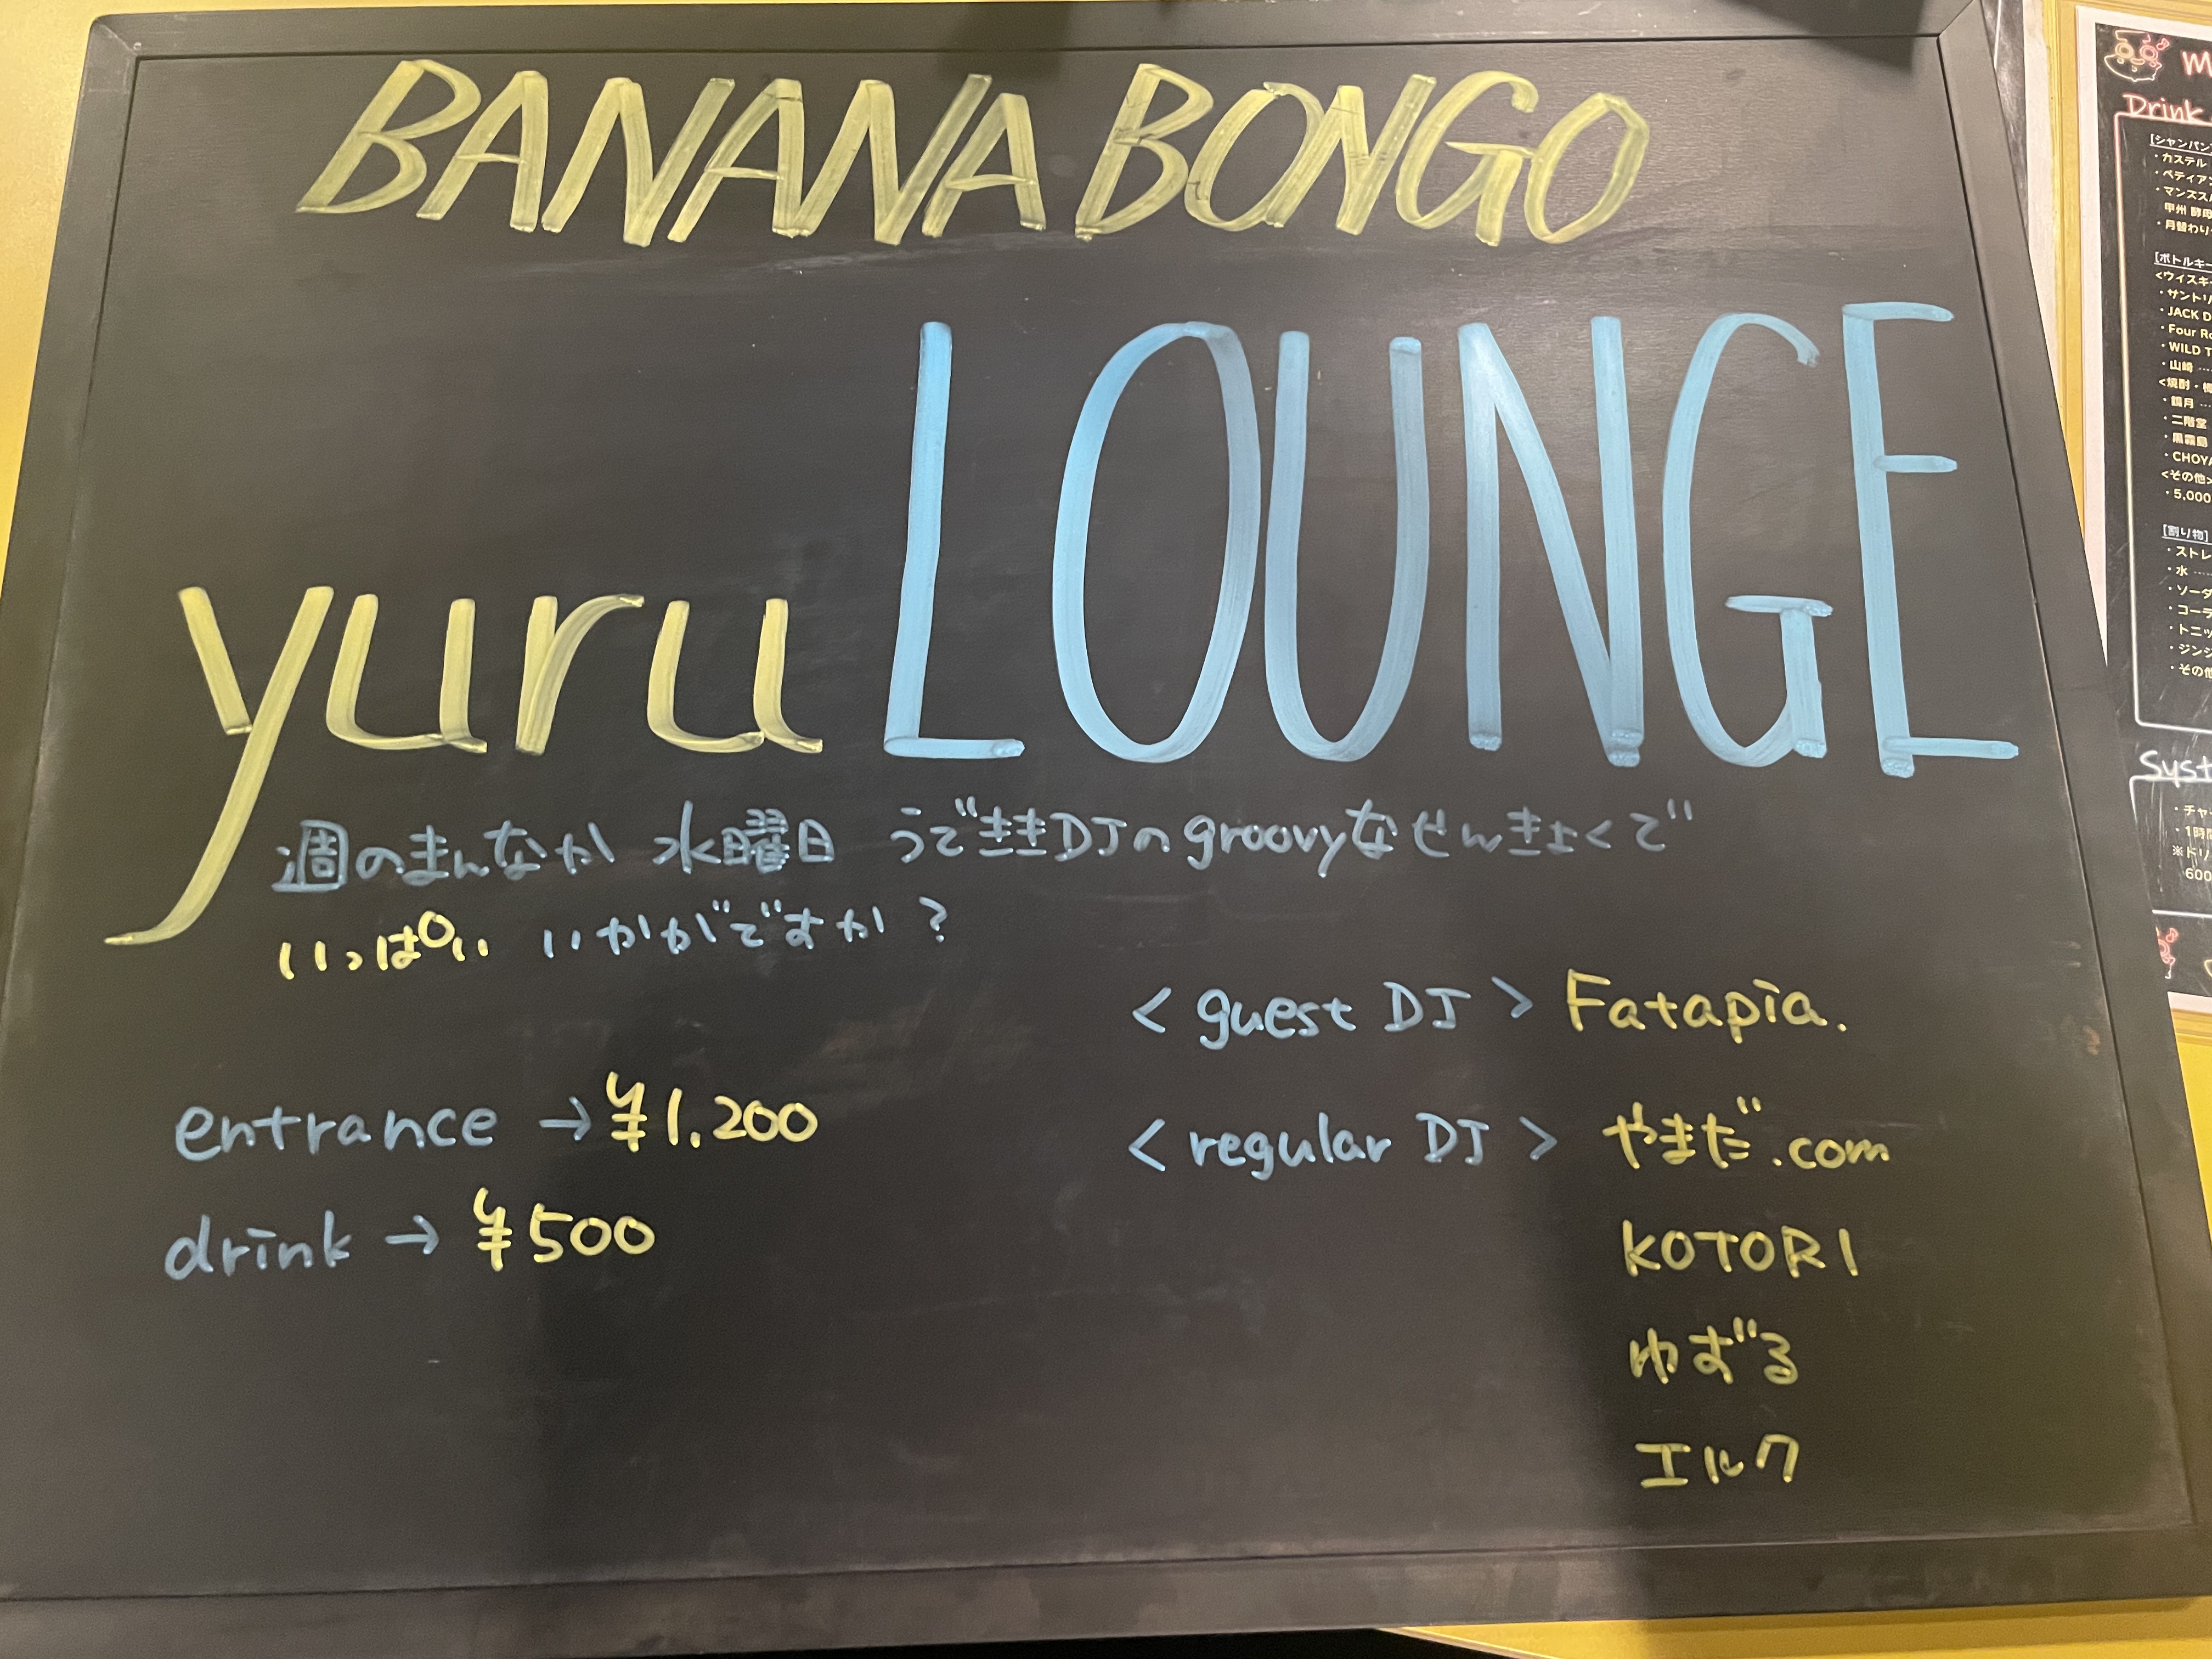 BANANA BONGO
yuru LOUNGE
週のまんなか 水曜日 うでききDJのgroovyなせんきょくで
いっぱい いかがですか？
< guest DJ > Fatapia.
entrance → ¥1.200
< regular DJ > やまだ.com
drink → ¥500
KOTORI
ゆずる
エルク
Drink
[シャンパン
・カステル
・ペティアン
・マンズス
甲州 酵母
・月替わり
[ボトルキー
<ウィスキー
・サントリ
・JACK D
・Four Ro
・WILD T
・山崎
<焼酎・梅
・鏡月
・二階堂
・黒霧島
・CHOYA
<その他>
・5,000
[割り物]
・ストレ
・水
・ソーダ
・コーラ
・トニッ
・ジンジ
・その他
Syst
・チャー
・1時間
※ドリ
600